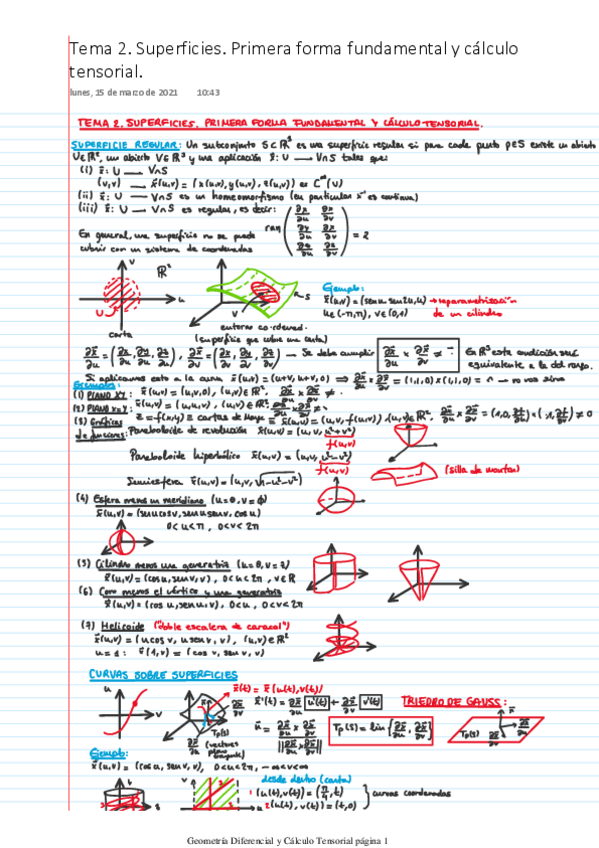 Tema 2. Superficies. Primera forma fundamental y cálculo
tensorial.
lunes, 15 de marzo de 2021 10:43
TEMA 2. SUPERFICIES. PRIMERA FORMA FUNDAMENTAL Y CÁLCULO TENSORIAL.
SUPERFICIE REGULAR: Un subconjunto S⊂ℝ³ es una superficie regular si para cada punto p∈S existe un abierto
U∈ℝ², un abierto V∈ℝ³ y una aplicación x̄: U → V∩S tales que:
(i) x̄: U → V∩S
(u,v) → x̄(u,v) = (x(u,v), y(u,v), z(u,v)) es C^∞(U)
(ii) x̄: U → V∩S es un homeomorfismo (en particular x̄⁻¹ es continua)
(iii) x̄: U → V∩S es regular, es decir: ran (∂x/∂u ∂x/∂v ∂y/∂u ∂y/∂v ∂z/∂u ∂z/∂v) = 2
En general, una superficie no se puede
cubrir con un sistema de coordenadas
v ℝ² u U
carta
V S
entorno coordenad.
(superficie que cubre una carta)
Ejemplo:
x̄(u,v) = (sen u, sen 2u, v) → reparametrización
u∈(-π,π), v∈(0,1) de un cilindro
∂x̄/∂u = (∂x/∂u, ∂y/∂u, ∂z/∂u), ∂x̄/∂v = (∂x/∂v, ∂y/∂v, ∂z/∂v) → Se debe cumplir ∂x̄/∂u × ∂x̄/∂v ≠ 0̄ En ℝ³ esta condición será
equivalente a la del rango.
Si aplicamos esto a la curva x̄(u,v) = (u+v, u+v, 0) ⇒ ∂x̄/∂u × ∂x̄/∂v = (1,1,0)×(1,1,0) =
Ejemplos:
(1) PLANO XY: x̄(u,v) = (u,v,0), (u,v)∈ℝ², ∂x̄/∂u × ∂x̄/∂v ≠
(2) PLANO x=y: x̄(u,v) = (u,u,v), (u,v)∈ℝ²
(3) Gráficas z = f(x,y) = cartas de Monge = x̄(u,v) = (u,v,f(u,v)), (u,v)∈ℝ²
de funciones: Paraboloide de revolución x̄(u,v) = (u,v,u²+v²)
f(u,v)
Paraboloide hiperbólico x̄(u,v) = (u,v,u²-v²) (silla de montar)
f(u,v)
Semiesfera x̄(u,v) = (u,v,√1-u²-v²)
(4) Esfera menos un meridiano (u=θ, v=ϕ)
x̄(u,v) = (sen u cos v, sen u sen v, cos u)
0<u<π, 0<v<2π
(5) Cilindro menos una generatriz (u=θ, v=z)
x̄(u,v) = (cos u, sen u, v), 0<u<2π, v∈ℝ
(6) Cono menos el vértice y una generatriz
(7) Helicoide ("doble escalera de caracol")
x̄(u,v) = (u cos v, u sen v, v), (u,v)∈ℝ²
u=1: x̄(1,v) = (cos v, sen v, v)
CURVAS SOBRE SUPERFICIES
x̄(t) = x̄(u(t),v(t))
x̄'(t) = ∂x̄/∂u u'(t) + ∂x̄/∂v v'(t)
TRIEDRO DE GAUSS:
n̄ = ∂x̄/∂u × ∂x̄/∂v / ||∂x̄/∂u × ∂x̄/∂v||
Tp(S) = lin {∂x̄/∂u, ∂x̄/∂v}
Tp(S)
(vectores plano tangente)
Ejemplo:
x̄(u,v) = (cos u, sen u, v), 0<u<2π, -∞<v<∞
desde dentro (carta)
(u(t),v(t)) = (π/4, t)
(u(t),v(t)) = (t,0) } curvas coordenadas
Geometría Diferencial y Cálculo Tensorial página 1